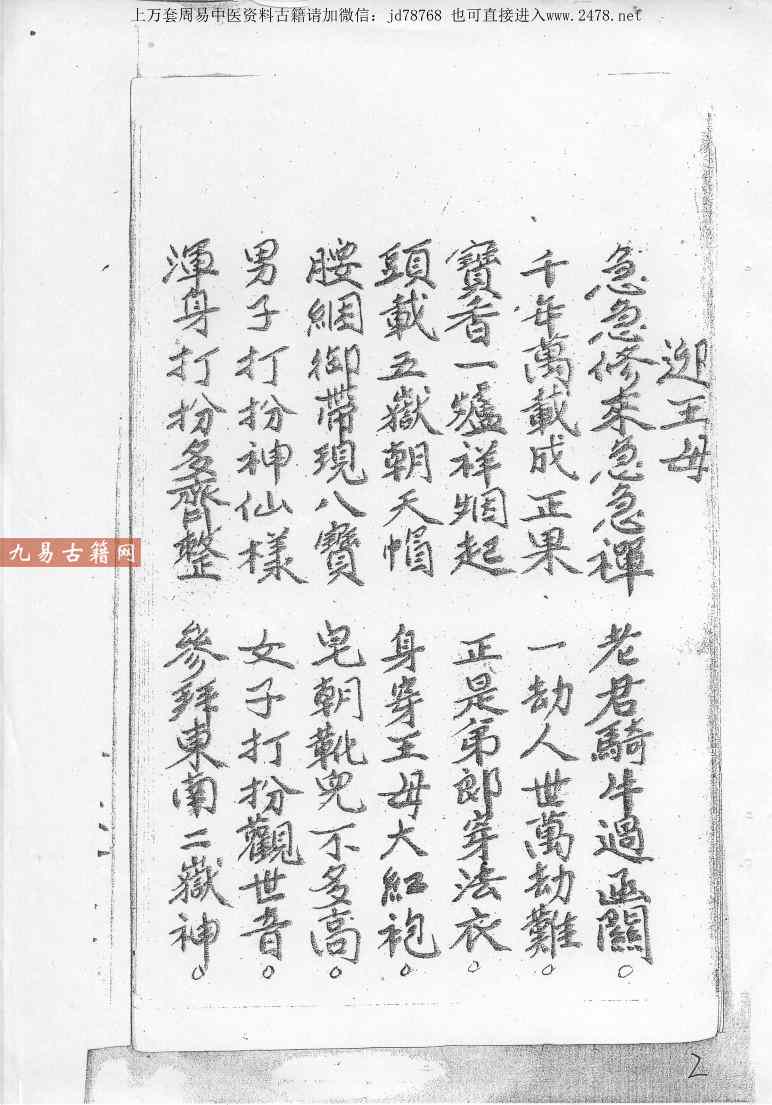 上万套周易中医资料古籍请加微信：jd78768 也可直接进入www.2478.net
迎王母
急急修來急急禪 老君騎牛過函關。
千年萬載成正果 一劫人世萬劫難。
寶香一爐祥烟起 正是弟郎穿法衣。
頭載五嶽朝天帽 身穿王母大紅袍。
腰綑御帶現八寶 皂朝靴兒不多高。
男子打扮神仙樣 女子打扮觀世音。
渾身打扮多齊整 參拜東南二嶽神。
九易古籍网
2